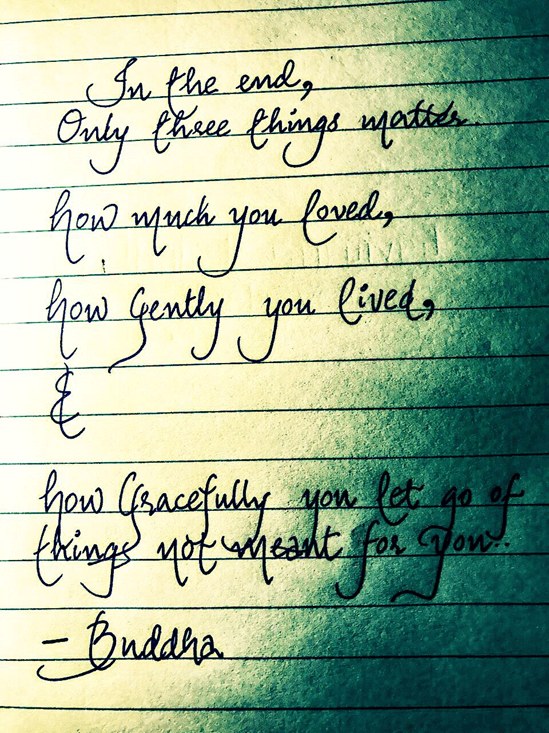 In the end,
Only three things matter.
how much you loved,
how Gently you lived,
&
how Gracefully you let go of
things not meant for you..
- Buddha